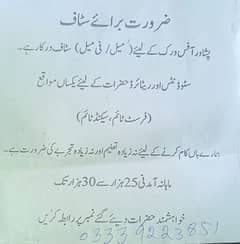 ضرورت برائے سٹاف
پشاور آفس ورک کے لیئے (میل / فی میل) سٹاف درکار ہے۔
سٹوڈنٹس اور ریٹائرڈ حضرات کے لیئے یکساں مواقع
(فرسٹ ٹائم، سیکنڈ ٹائم)
ہمارے ہاں کام کرنے کے لیئے نہ زیادہ تعلیم اور نہ زیادہ تجربے کی ضرورت ہے۔
ماہانہ آمدنی 25 ہزار سے 30 ہزار تک
خواہشمند حضرات دیئے گئے نمبر پر رابطہ کریں
0333 9223851